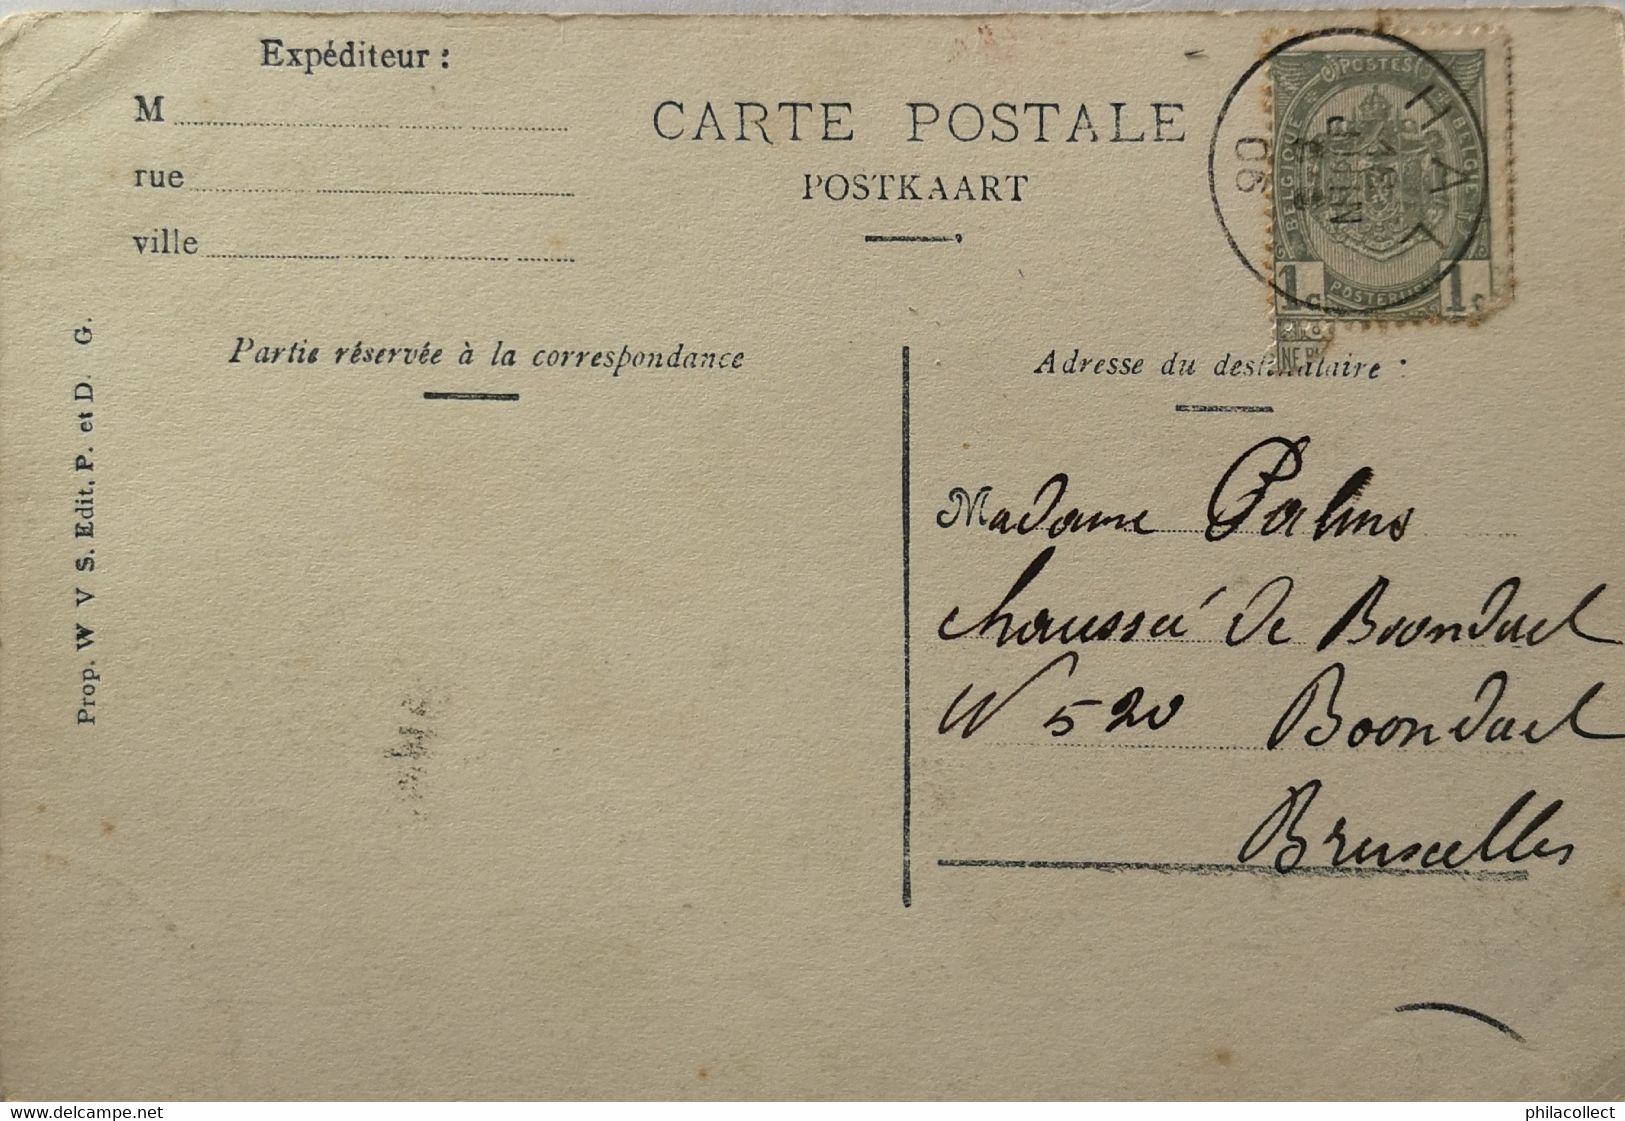 Expéditeur :
M
rue
ville
CARTE POSTALE
POSTKAART
HAL
06
POSTES
BELGIQUE
BELGIË
POSTERIJEN
1c 1c
Partie réservée à la correspondance
Adresse du destinataire :
Prop. W V S. Edit. P. et D. G.
Madame Palms
Chaussée de Boondael
N 520 Boondael
Bruxelles
delcampe.net
philacollect